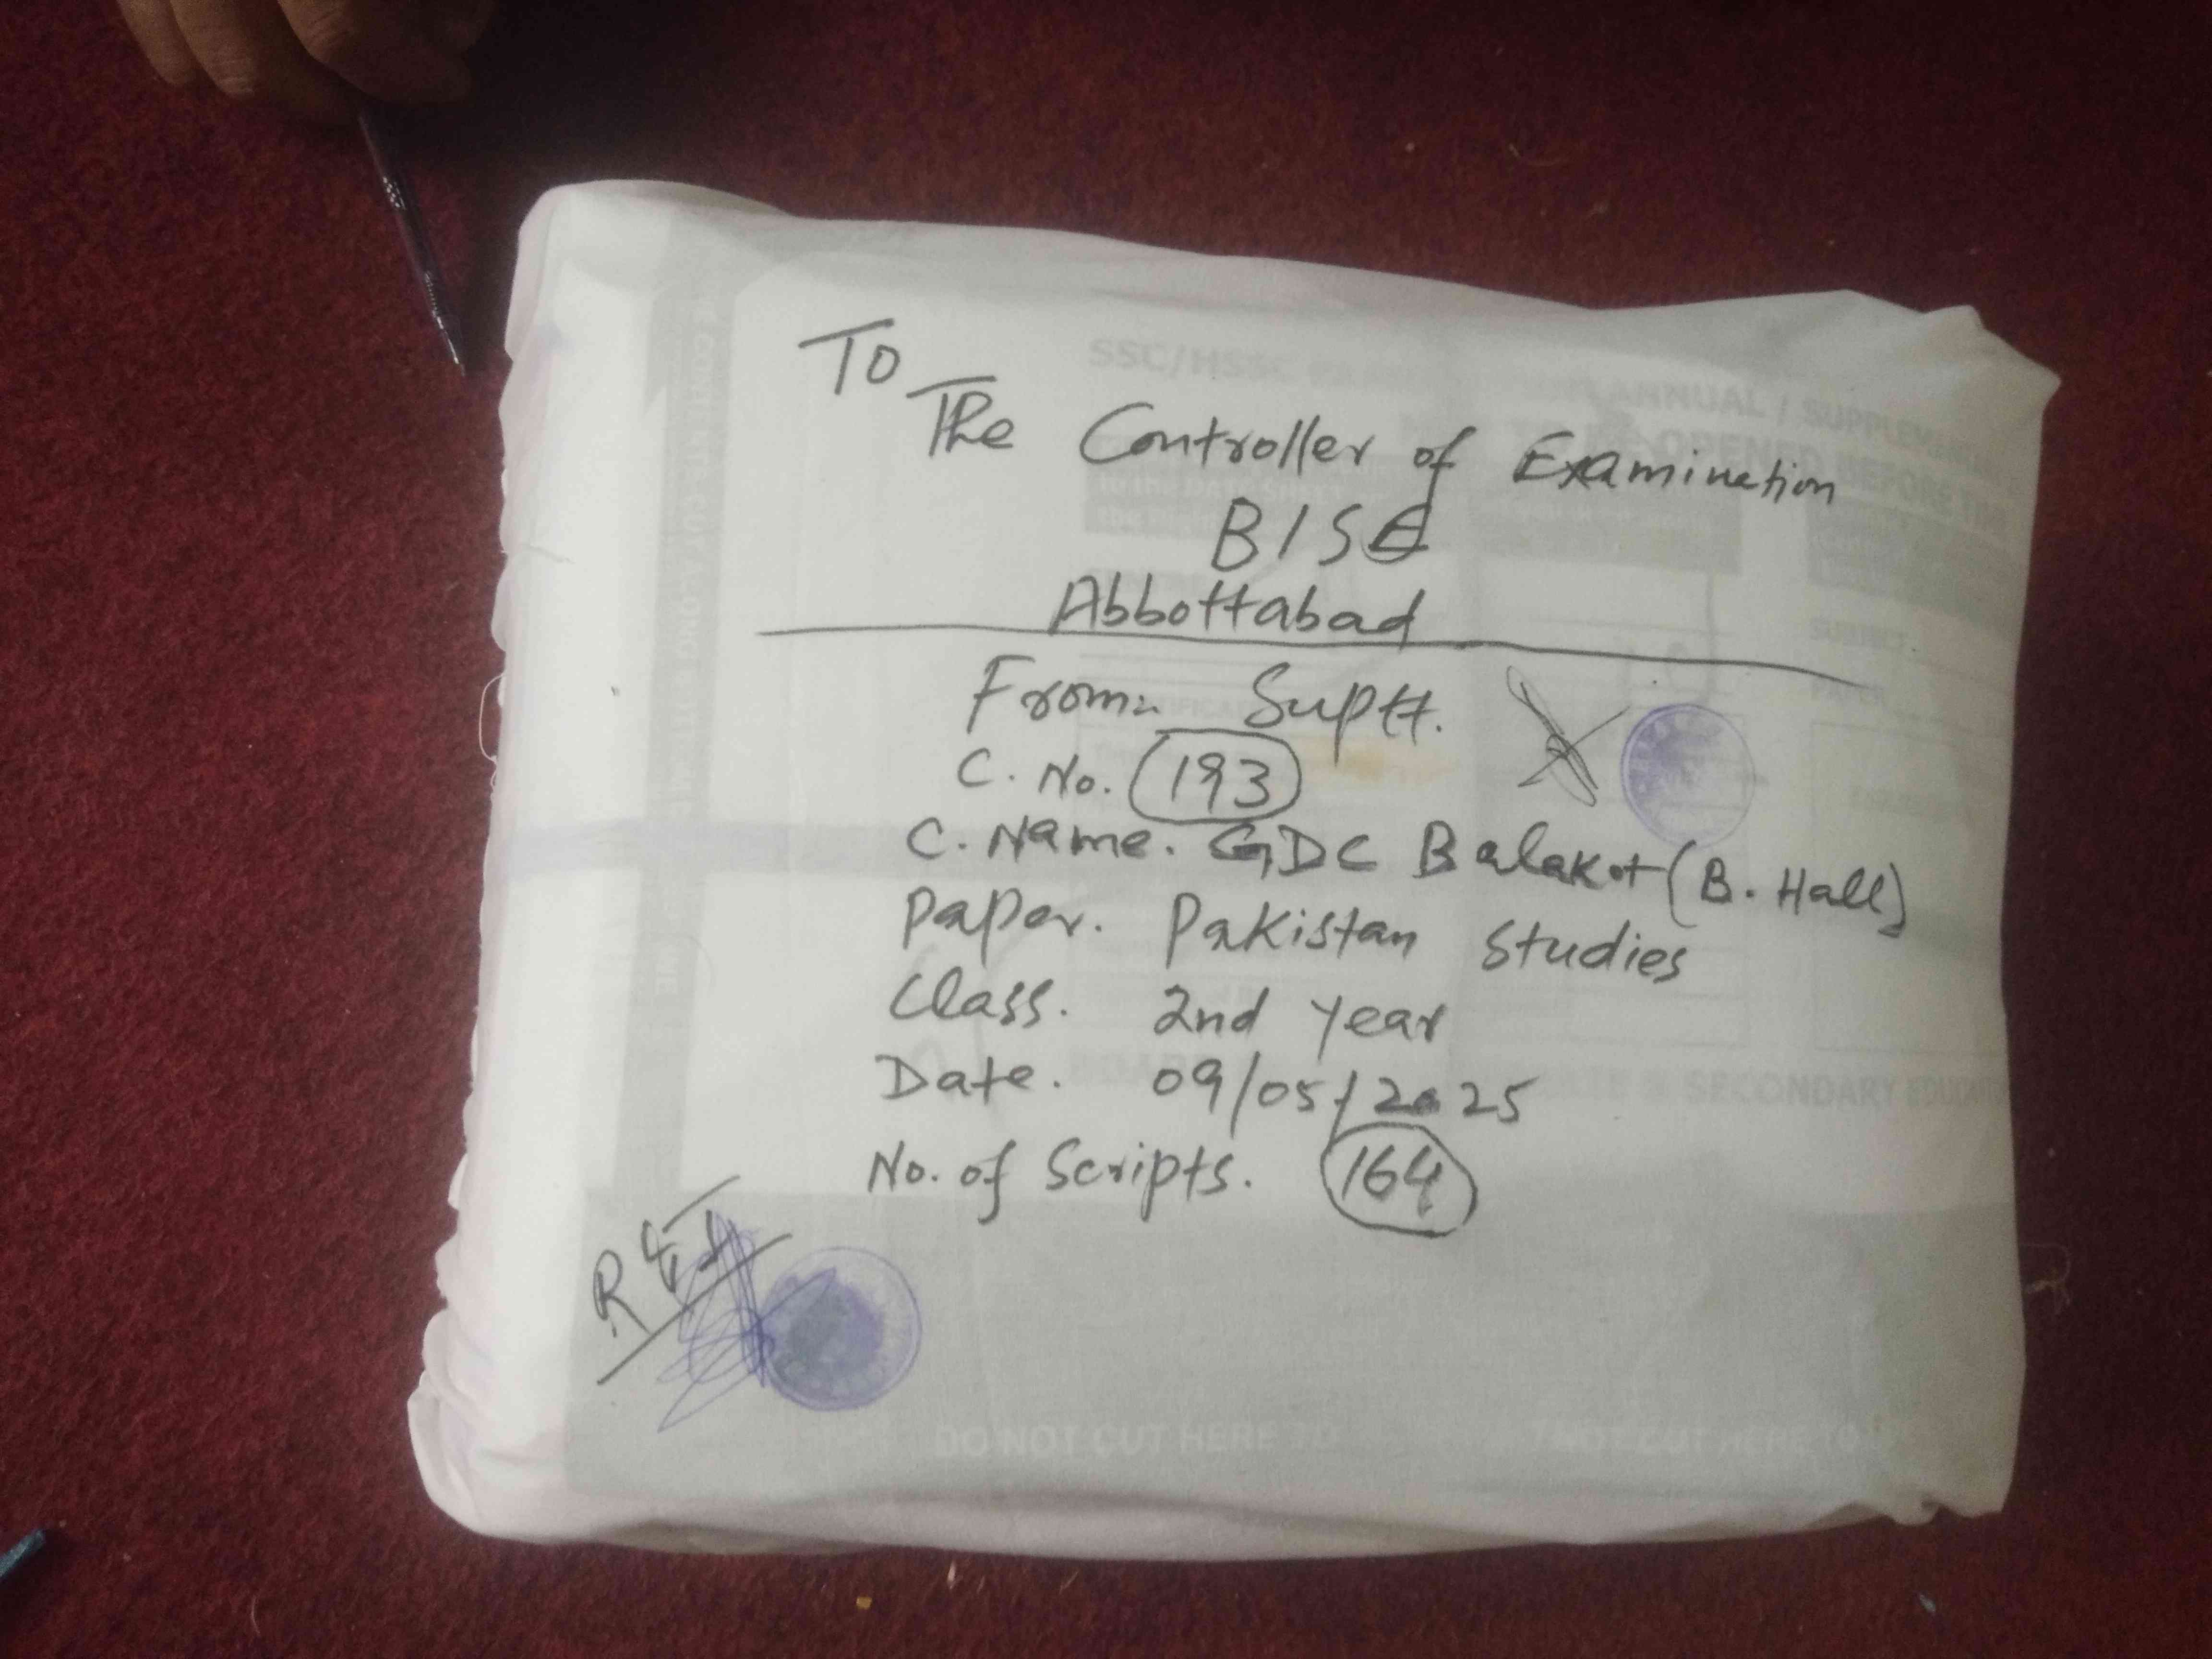 To
The Controller of Examination
BISE
Abbottabad
From:- Suptt.
C. No. 193
C. Name. GDC Balakot (B. Hall)
Paper. Pakistan Studies
Class. 2nd year
Date. 09/05/2025
No. of Scripts. 164
SSC/HSSC
ANNUAL / SUPPLEM
OPENED BEFORE THE
SUBJECT
PAPER
SECONDARY EDUCA
DO NOT CUT HERE TO
NOT CUT HERE TO